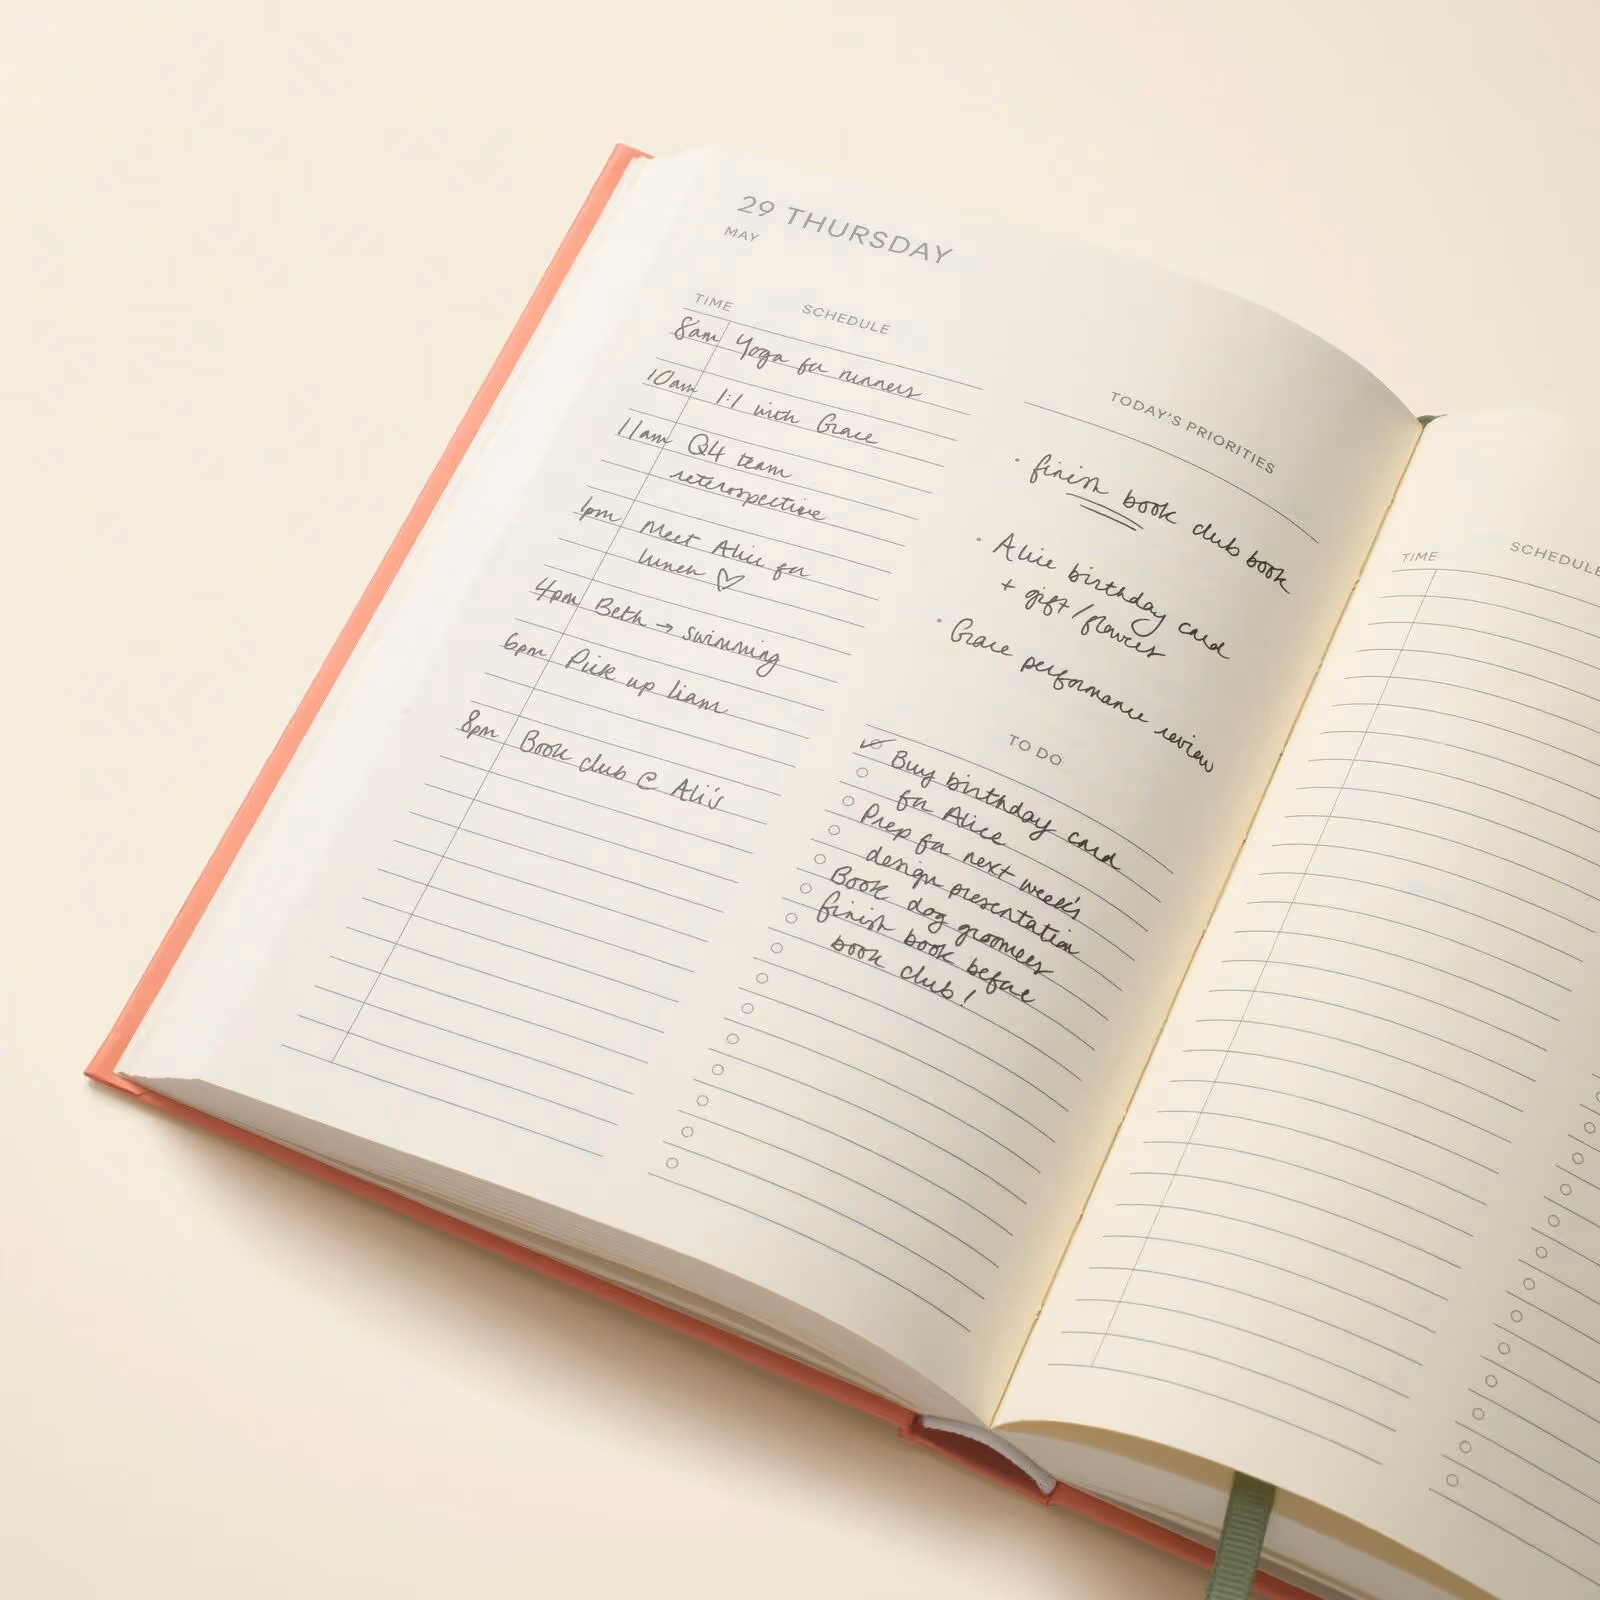 29 THURSDAY
MAY
TIME SCHEDULE
8am Yoga for runners
10am 1:1 with Grace
11am Q4 team
reterospective
1pm Meet Alice for
lunch ♡
4pm Beth → swimming
6pm Pick up liam
8pm Book club @ Ali's
TODAY'S PRIORITIES
• finish book club book
• Alice birthday card
+ gift/flowers
• Grace performance review
TO DO
✓ Buy birthday card
for Alice
Prep for next week's
design presentation
Book dog groomers
finish book before
book club!
TIME SCHEDULE